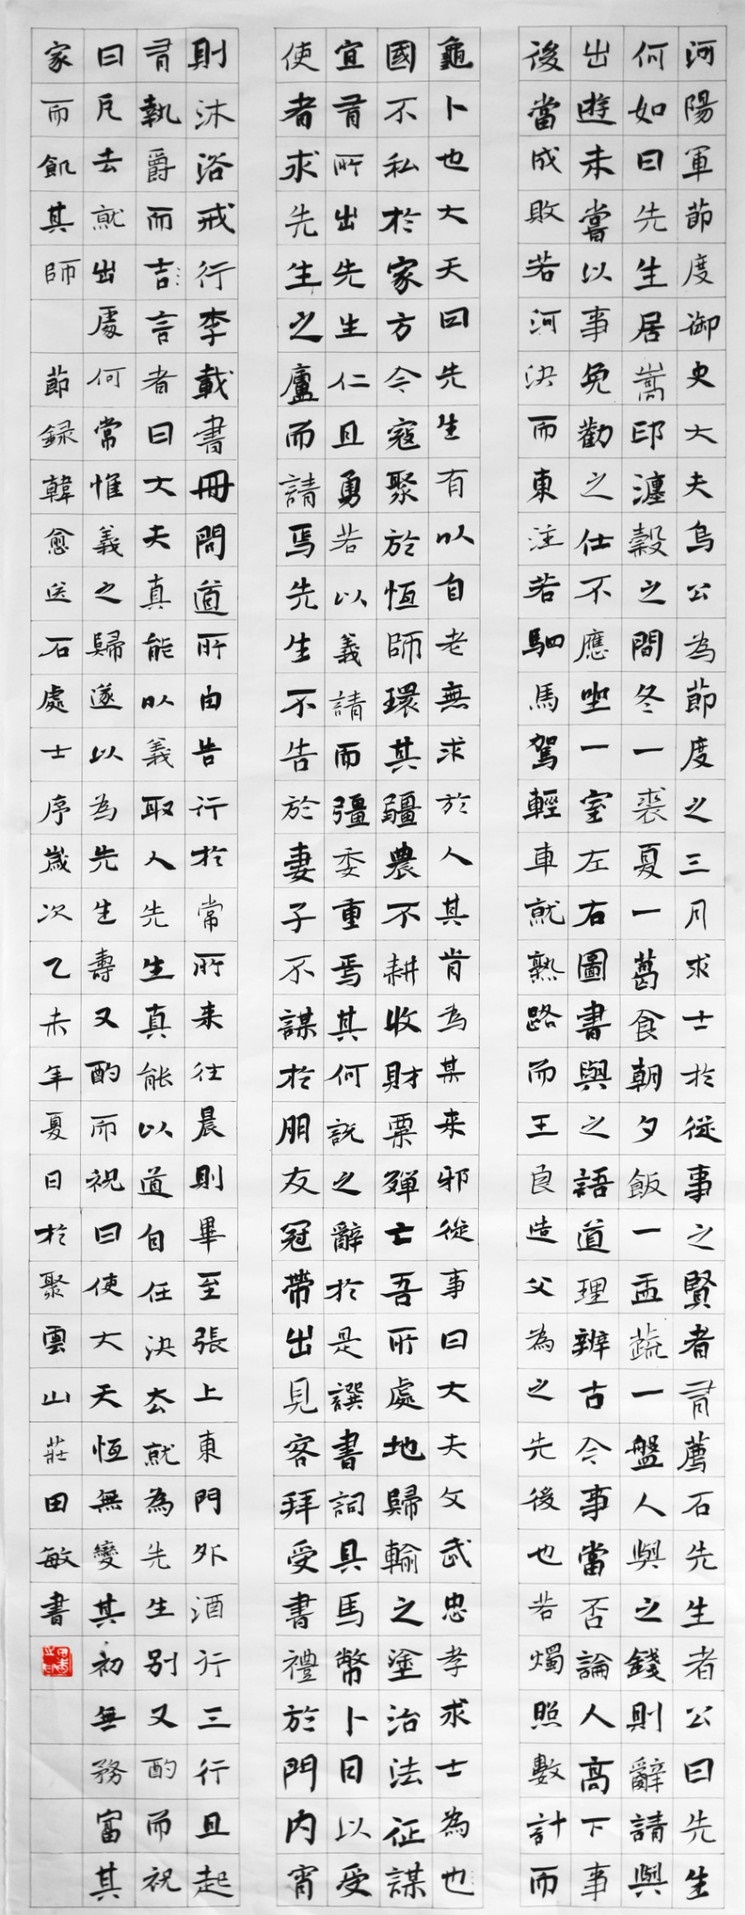 河陽軍節度御史大夫烏公為節度之三月求士於從事之賢者有薦石先生者公曰先生
何如曰先生居嵩邙瀍穀之間冬一裘夏一葛食朝夕飯一盂蔬一盤人與之錢則辭請與
出遊未嘗以事免勸之仕不應坐一室左右圖書與之語道理辨古今事當否論人高下事
後當成敗若河決而東注若駟馬駕輕車就熟路而王良造父為之先後也若燭照數計而
龜卜也大夫曰先生有以自老無求於人其肯為某来邪從事曰大夫文武忠孝求士為也
國不私於家方今寇聚於恆師環其疆農不耕收財粟殫亡吾所處地歸輸之塗治法征謀
宜有所出先生仁且勇若以義請而彊委重焉其何說之辭於是譔書詞具馬幣卜日以受
使者求先生之廬而請焉先生不告於妻子不謀於朋友冠帶出見客拜受書禮於門内宵
則沐浴戒行李載書冊問道所由告行於常所来往晨則畢至張上東門外酒行三行且起
有執爵而言言者曰大夫真能以義取人先生真能以道自任決去就為先生别又酌而祝
曰凡去就出處何常惟義之歸遂以為先生壽又酌而祝曰使大夫恆無變其初無務富其
家而飢其師 節録韓愈送石處士序歲次乙未年夏日於聚雲山莊田敏書